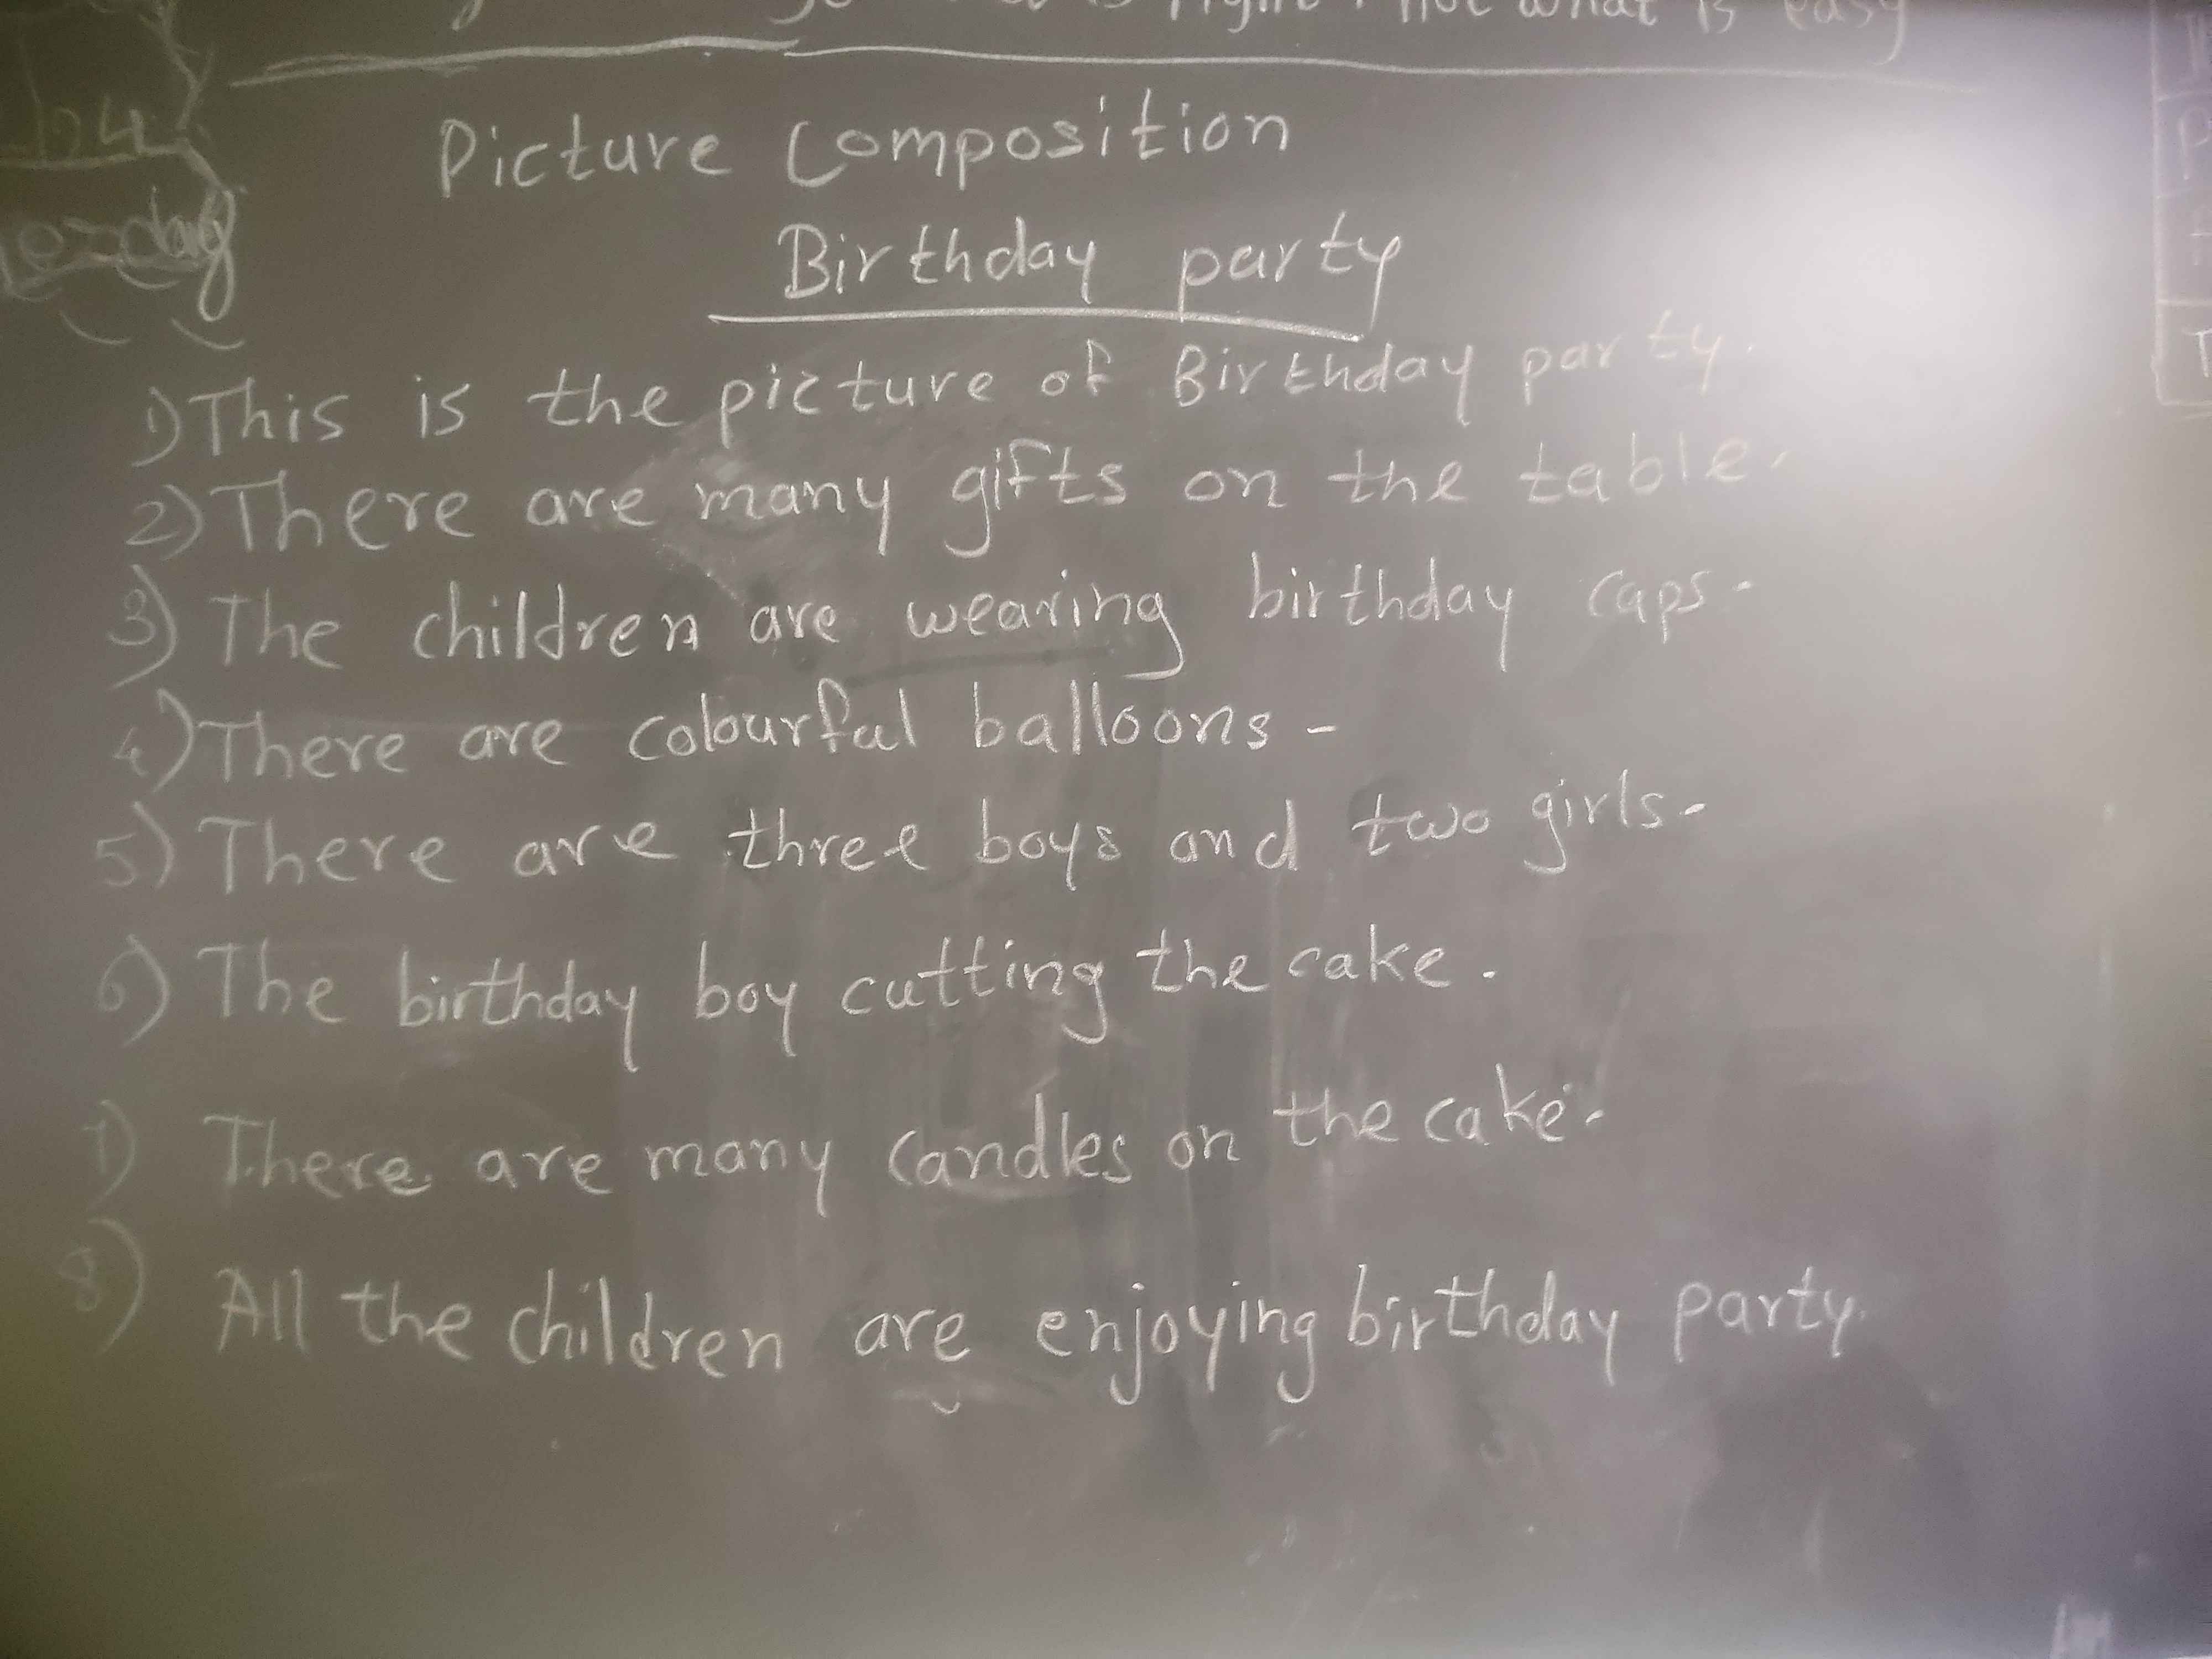 right, not what is easy
Picture Composition
Birthday party
1) This is the picture of Birthday party.
2) There are many gifts on the table.
3) The children are wearing birthday caps.
4) There are colourful balloons.
5) There are three boys and two girls.
6) The birthday boy cutting the cake.
7) There are many candles on the cake.
8) All the children are enjoying birthday party.